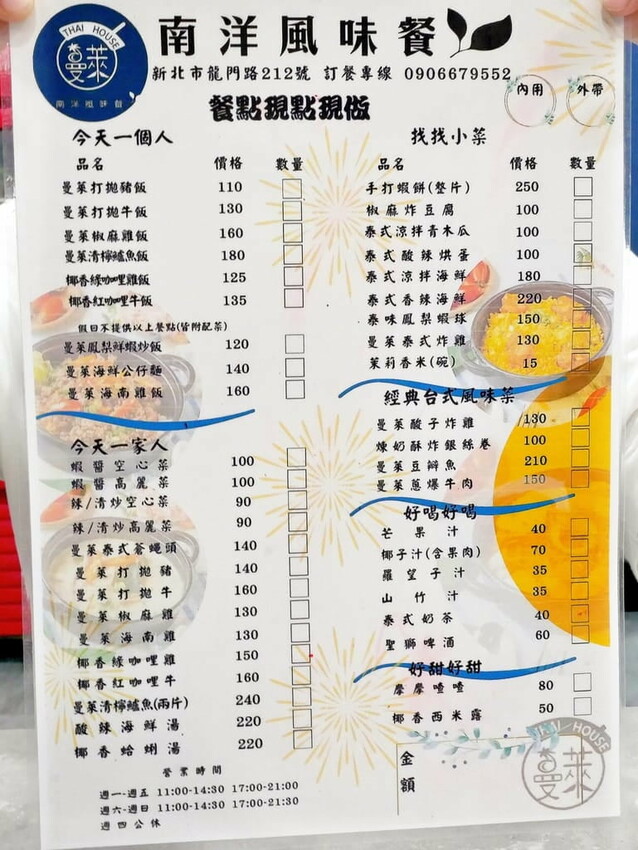 THAI HOUSE
曼萊
南洋風味餐
南洋風味餐
新北市龍門路212號 訂餐專線 0906679552
內用 外帶
餐點現點現做
今天一個人
品名 價格 數量
曼萊打拋豬飯 110
曼萊打拋牛飯 130
曼萊椒麻雞飯 160
曼萊清檸鱸魚飯 180
椰香綠咖哩雞飯 125
椰香紅咖哩牛飯 135
假日不提供以上餐點(皆附配菜)
曼萊鳳梨鮮蝦炒飯 120
曼萊海鮮公仔麵 140
曼萊海南雞飯 160
今天一家人
蝦醬空心菜 100
蝦醬高麗菜 100
辣/清炒空心菜 90
辣/清炒高麗菜 90
曼萊泰式蒼蠅頭 140
曼萊打拋豬 140
曼萊打拋牛 160
曼萊椒麻雞 130
曼萊海南雞 130
椰香綠咖哩雞 150
椰香紅咖哩牛 160
曼萊清檸鱸魚(兩片) 240
酸辣海鮮湯 220
椰香蛤蜊湯 220
營業時間
週一-週五 11:00-14:30 17:00-21:00
週六-週日 11:00-14:30 17:00-21:30
週四公休
找找小菜
品名 價格 數量
手打蝦餅(整片) 250
椒麻炸豆腐 100
泰式涼拌青木瓜 100
泰式酸辣烘蛋 100
泰式涼拌海鮮 180
泰式香辣海鮮 220
泰味鳳梨蝦球 150
曼萊泰式炸雞 130
茉莉香米(碗) 15
經典台式風味菜
曼萊酸子炸雞 130
煉奶酥炸銀絲卷 100
曼萊豆瓣魚 210
曼萊蔥爆牛肉 150
好喝好喝
芒果汁 40
椰子汁(含果肉) 70
羅望子汁 35
山竹汁 35
泰式奶茶 40
聖獅啤酒 60
好甜好甜
摩摩喳喳 80
椰香西米露 50
金額
THAI HOUSE
曼萊